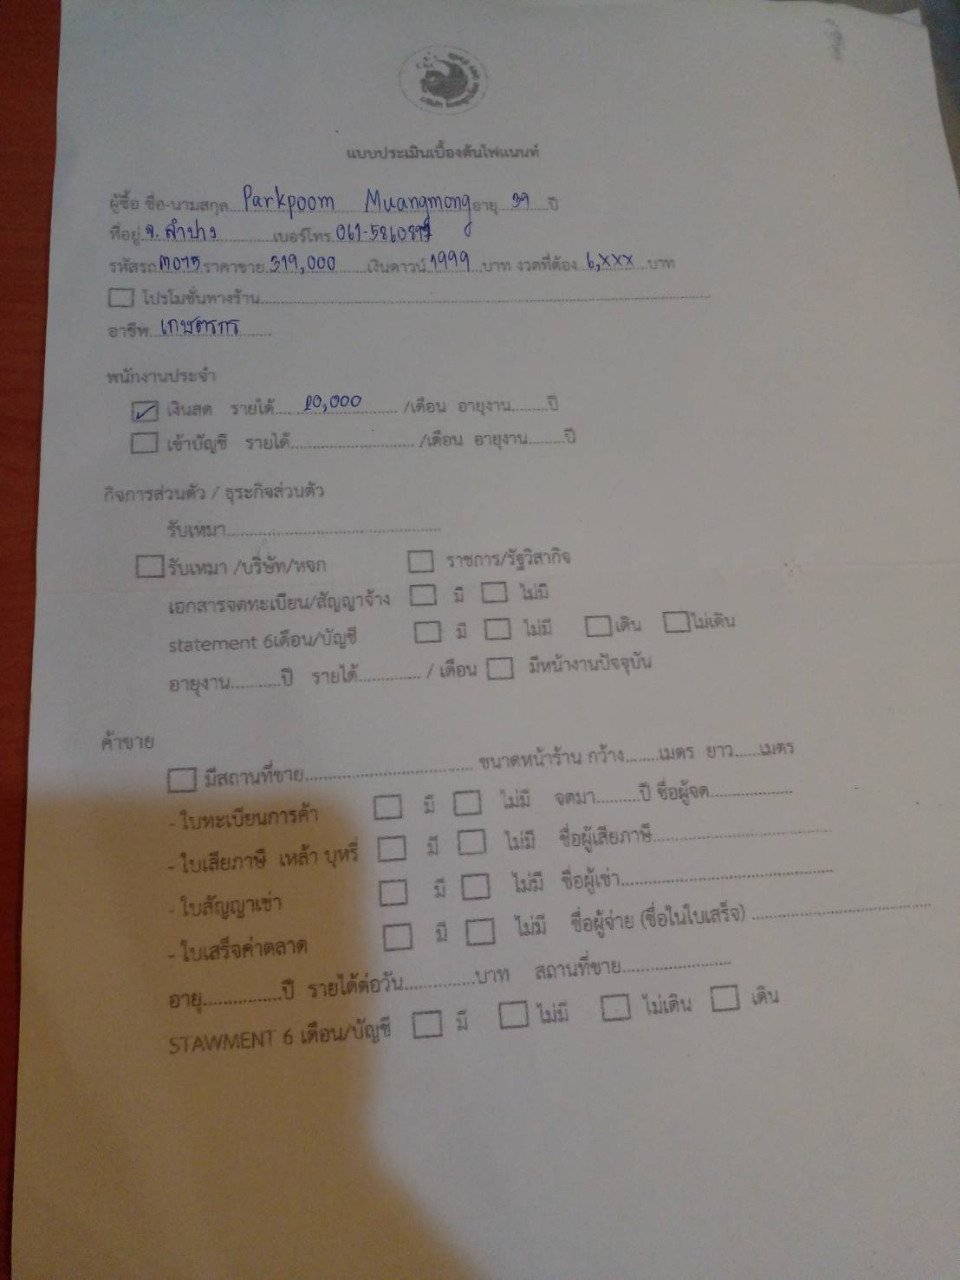 แบบประเมินเบื้องต้นไฟแนนท์
ผู้ซื้อ ชื่อ-นามสกุล Parkpoom Muangmong อายุ 39 ปี
ที่อยู่ จ.ลำปาง เบอร์โทร
รหัสรถ M075 ราคาขาย 319,000 เงินดาวน์ 1999 บาท งวดที่ต้อง 6,xxx บาท
โปรโมชั่นทางร้าน
อาชีพ เกษตรกร
พนักงานประจำ
✓ เงินสด รายได้ 20,000 /เดือน อายุงาน ปี
เข้าบัญชี รายได้ /เดือน อายุงาน ปี
กิจการส่วนตัว / ธุระกิจส่วนตัว
รับเหมา
รับเหมา /บริษัท/หจก ราชการ/รัฐวิสากิจ
เอกสารจดทะเบียน/สัญญาจ้าง มี ไม่มี
statement 6เดือน/บัญชี มี ไม่มี เดิน ไม่เดิน
อายุงาน ปี รายได้ / เดือน มีหน้างานปัจจุบัน
ค้าขาย
มีสถานที่ขาย ขนาดหน้าร้าน กว้าง เมตร ยาว เมตร
- ใบทะเบียนการค้า มี ไม่มี จดมา ปี ชื่อผู้จด
- ใบเสียภาษี เหล้า บุหรี่ มี ไม่มี ชื่อผู้เสียภาษี
- ใบสัญญาเช่า มี ไม่มี ชื่อผู้เช่า
- ใบเสร็จค่าตลาด มี ไม่มี ชื่อผู้จ่าย (ชื่อในใบเสร็จ)
อายุ ปี รายได้ต่อวัน บาท สถานที่ขาย
STAWMENT 6 เดือน/บัญชี มี ไม่มี ไม่เดิน เดิน